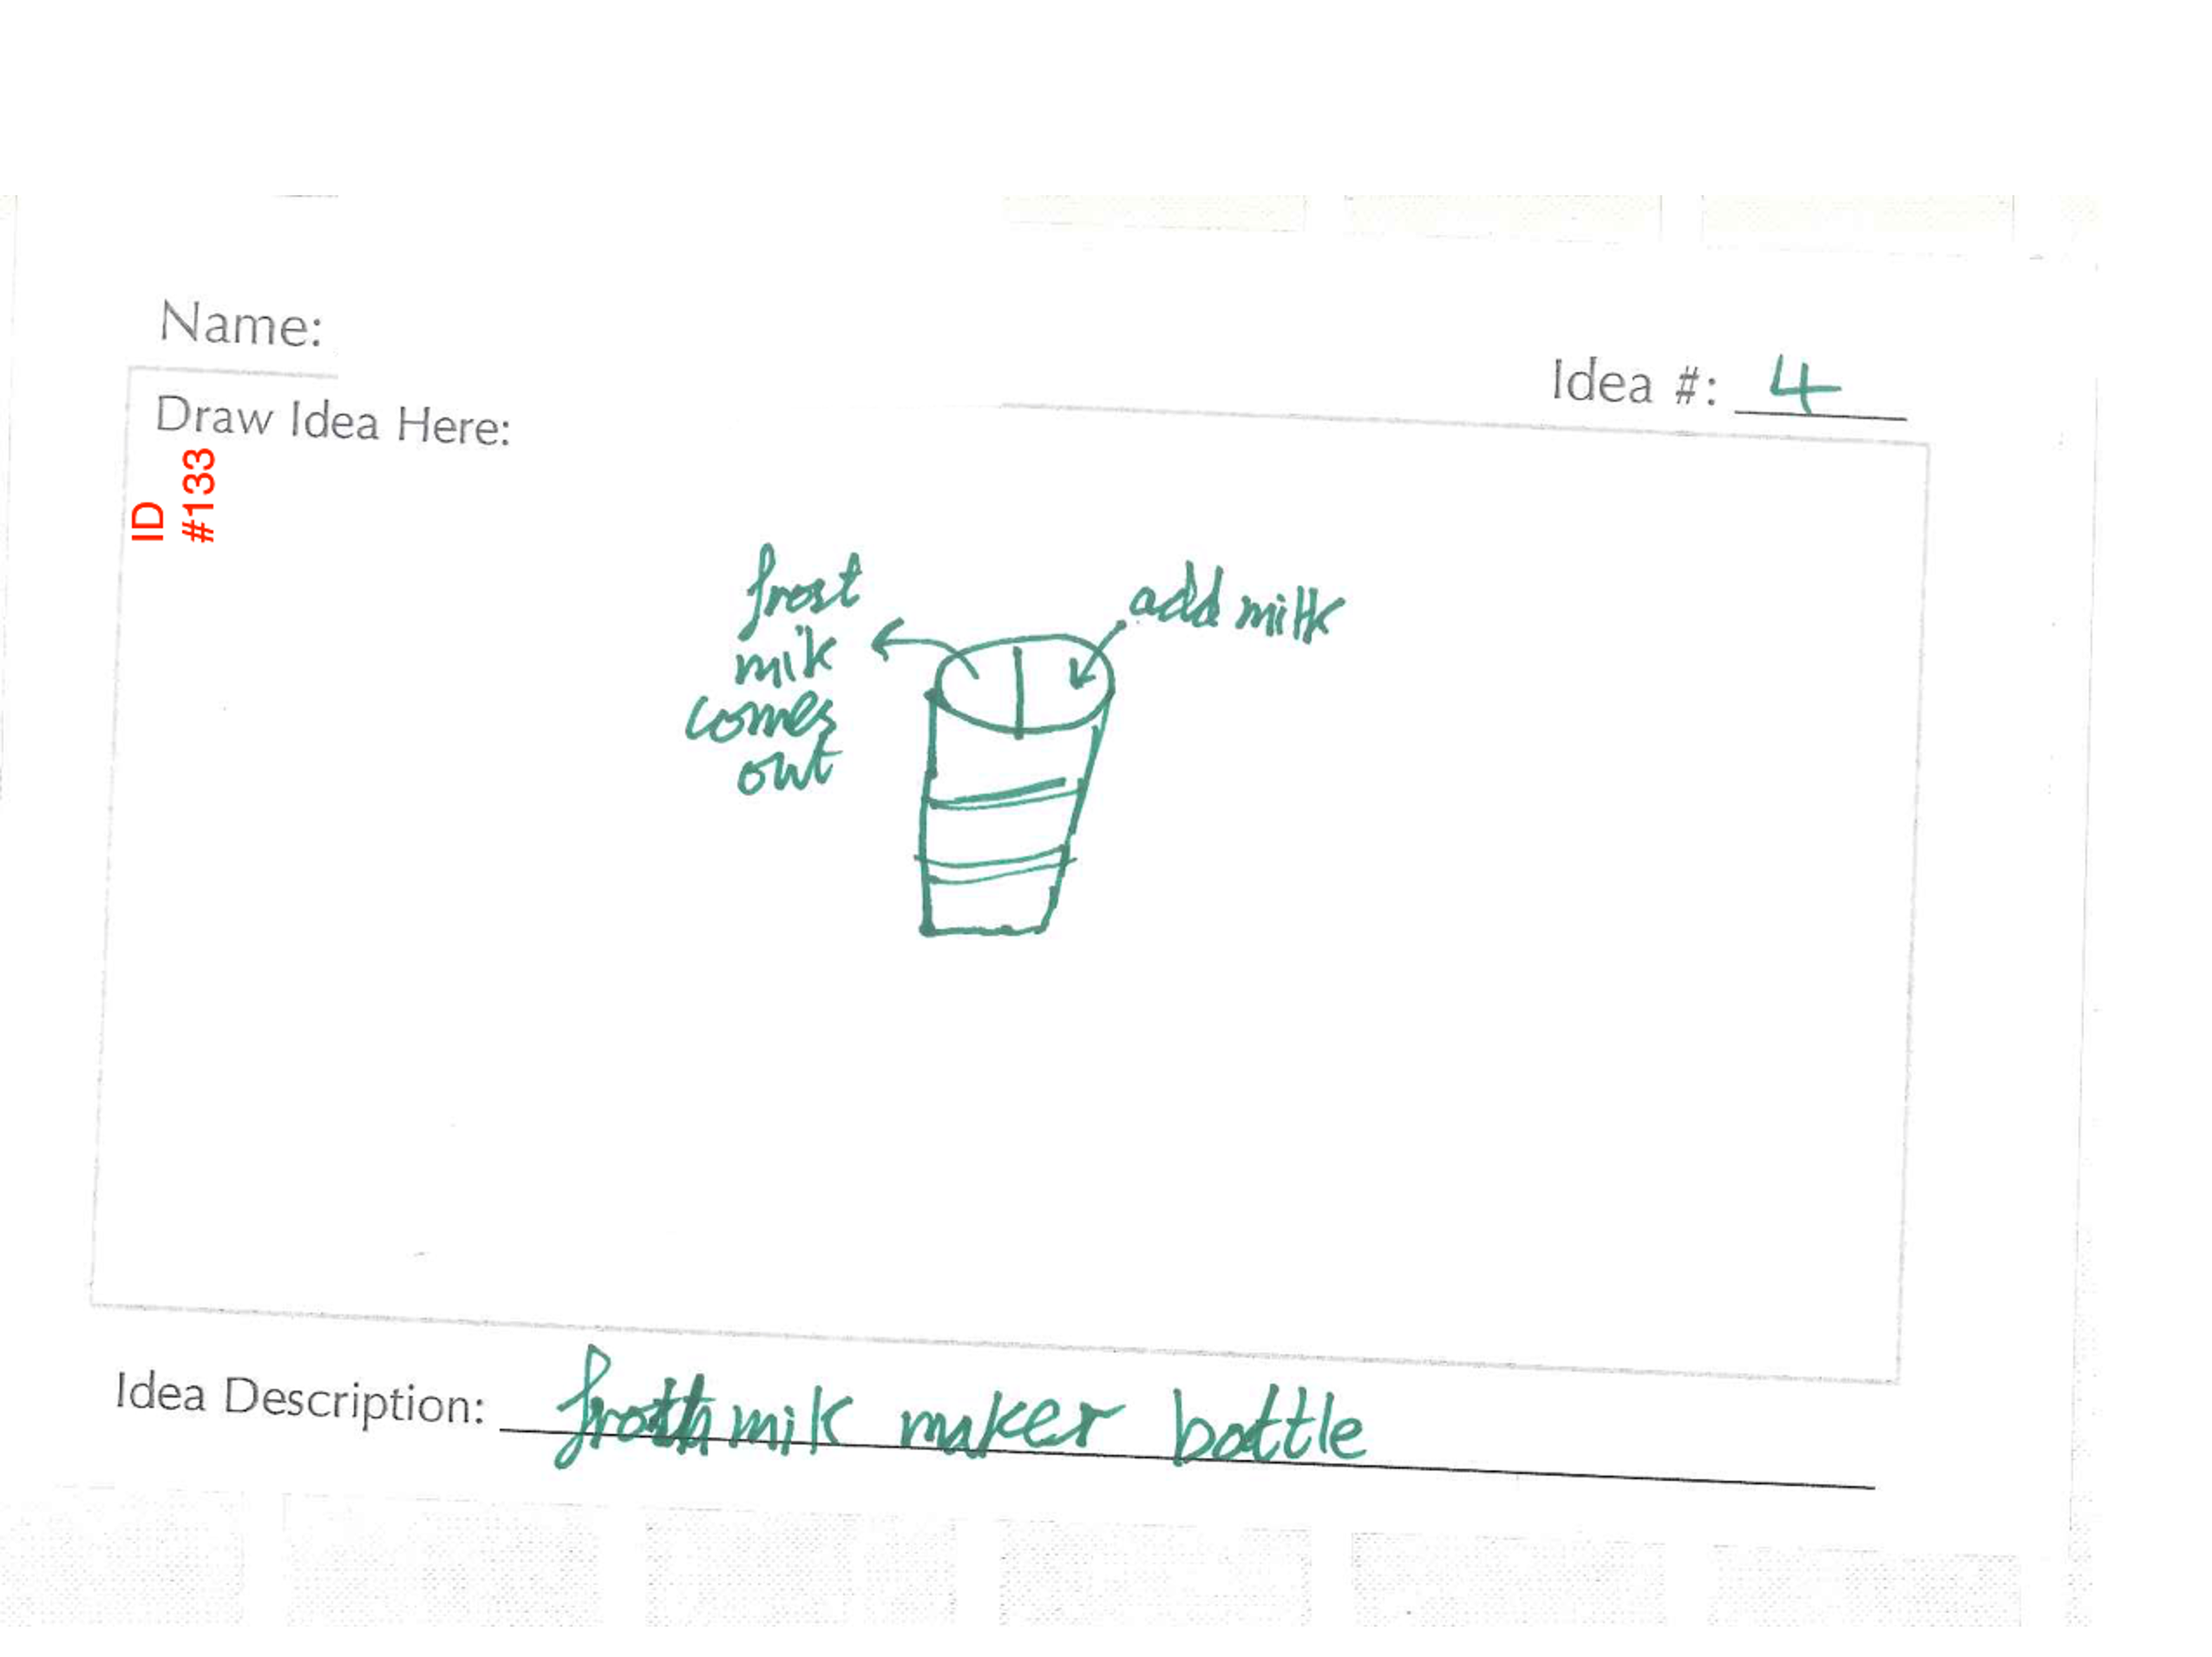 Name:
Idea #: 4
Draw Idea Here:
ID
#133
frost
mik
comes
out
add milk
Idea Description: froth mik maker bottle